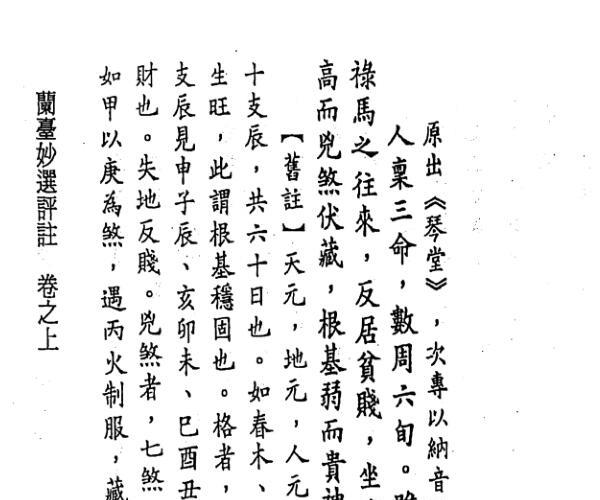 原出《琴堂》，次專以納音
人稟三命，數周六旬。
祿馬之往來，反居貧賤，坐
高而兇煞伏藏，根基弱而貴神
【舊註】天元，地元，人元
十支辰，共六十日也。如春木、
生旺，此謂根基穩固也。格者，
支辰見申子辰、亥卯未、巳酉丑
財也。失地反賤。兇煞者，七煞
如甲以庚為煞，遇丙火制服，藏
蘭臺妙選評註 卷之上